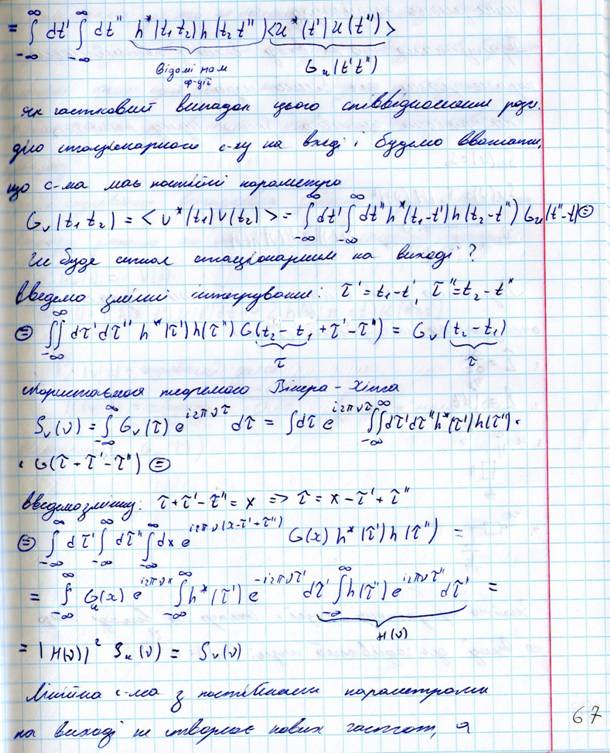 = ∫_{-∞}^{∞} dt' ∫_{-∞}^{∞} dt'' h*(t₁t₂) h(t₂t'') <u*(t') u(t'')>
Відомі нам G_u(t't'')
ф-ції
як частковий випадок цього співвідношення розг.
дію стаціонарного с-лу на вході і будемо вважати,
що с-ма має постійні параметри
G_v(t₁t₂) = <v*(t₁)v(t₂)> = ∫_{-∞}^{∞} dt' ∫_{-∞}^{∞} dt'' h*(t₁-t') h(t₂-t'') G_u(t''-t') ⊜
Чи буде сигнал стаціонарним на виході?
Введемо змінні інтегрування: τ' = t₁-t', τ'' = t₂-t''
⊜ ∫∫_{-∞}^{∞} dτ'dτ'' h*(τ')h(τ'') G(t₂-t₁+τ'-τ'') = G_v(t₂-t₁)
τ τ
скористаємося теоремою Вінера-Хінча
S_v(ν) = ∫_{-∞}^{∞} G_v(τ) e^{i2πντ} dτ = ∫dτ e^{i2πντ} ∫∫_{-∞}^{∞} dτ'dτ'' h*(τ')h(τ'') ·
· G(τ+τ'-τ'') ⊜
Введемо заміну: τ+τ'-τ'' = x => τ = x-τ'+τ''
⊜ ∫_{-∞}^{∞} dτ' ∫_{-∞}^{∞} dτ'' ∫_{-∞}^{∞} dx e^{i2πν(x-τ'+τ'')} G(x) h*(τ') h(τ'') =
= ∫_{-∞}^{∞} G_u(x) e^{i2πνx} ∫_{-∞}^{∞} h*(τ') e^{-i2πντ'} dτ' ∫_{-∞}^{∞} h(τ'') e^{i2πντ''} dτ' =
H(ν)
= |H(ν)|² S_u(ν) = S_v(ν)
Лінійна с-ма з постійними параметрами
на виході не створює нових частот, а
67